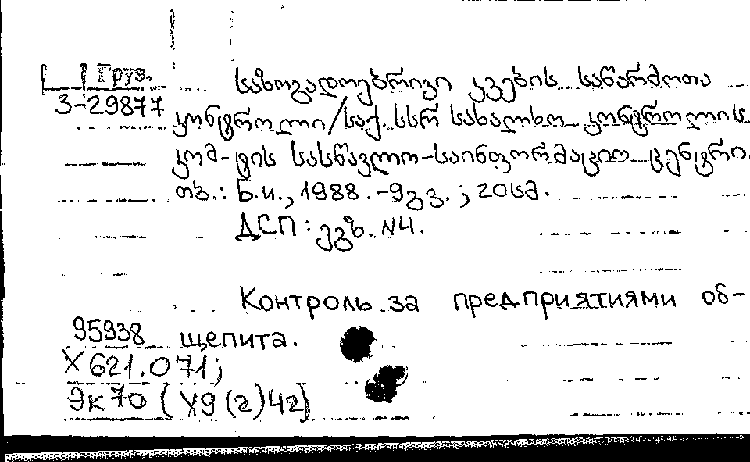 Груз.
3-29877
საზოგადოებრივი კვების საწარმოთა
კონტროლი/საქ. სსრ სახალხო კონტროლის
კომ-ტის სასწავლო-საინფორმაციო ცენტრი.
თბ.: Б.и., 1988.-9გვ.; 20სმ.
ДСП: ეგზ. N4.
Контроль за предприятиями об-
щепита.
95938
X621.071;
ЭК70 (У9(2)42)